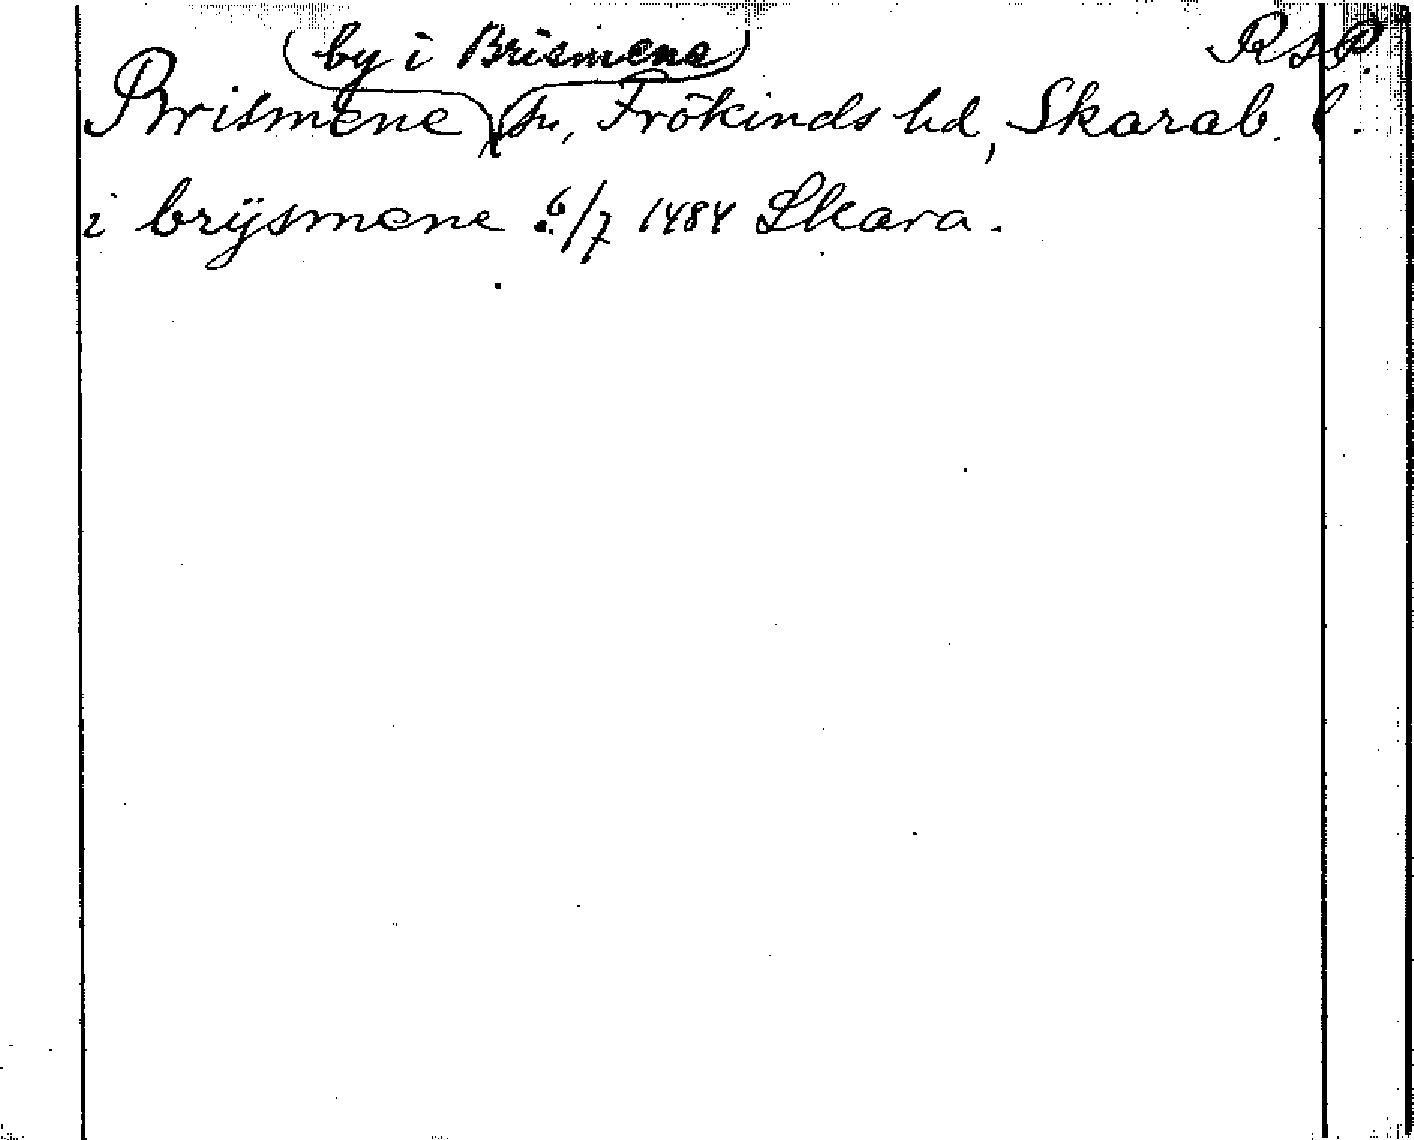 by i Brismene RAP.
Brismene sn, Frökinds hd, Skarab. l.
i brÿsmene 6/7 1484 Skara.